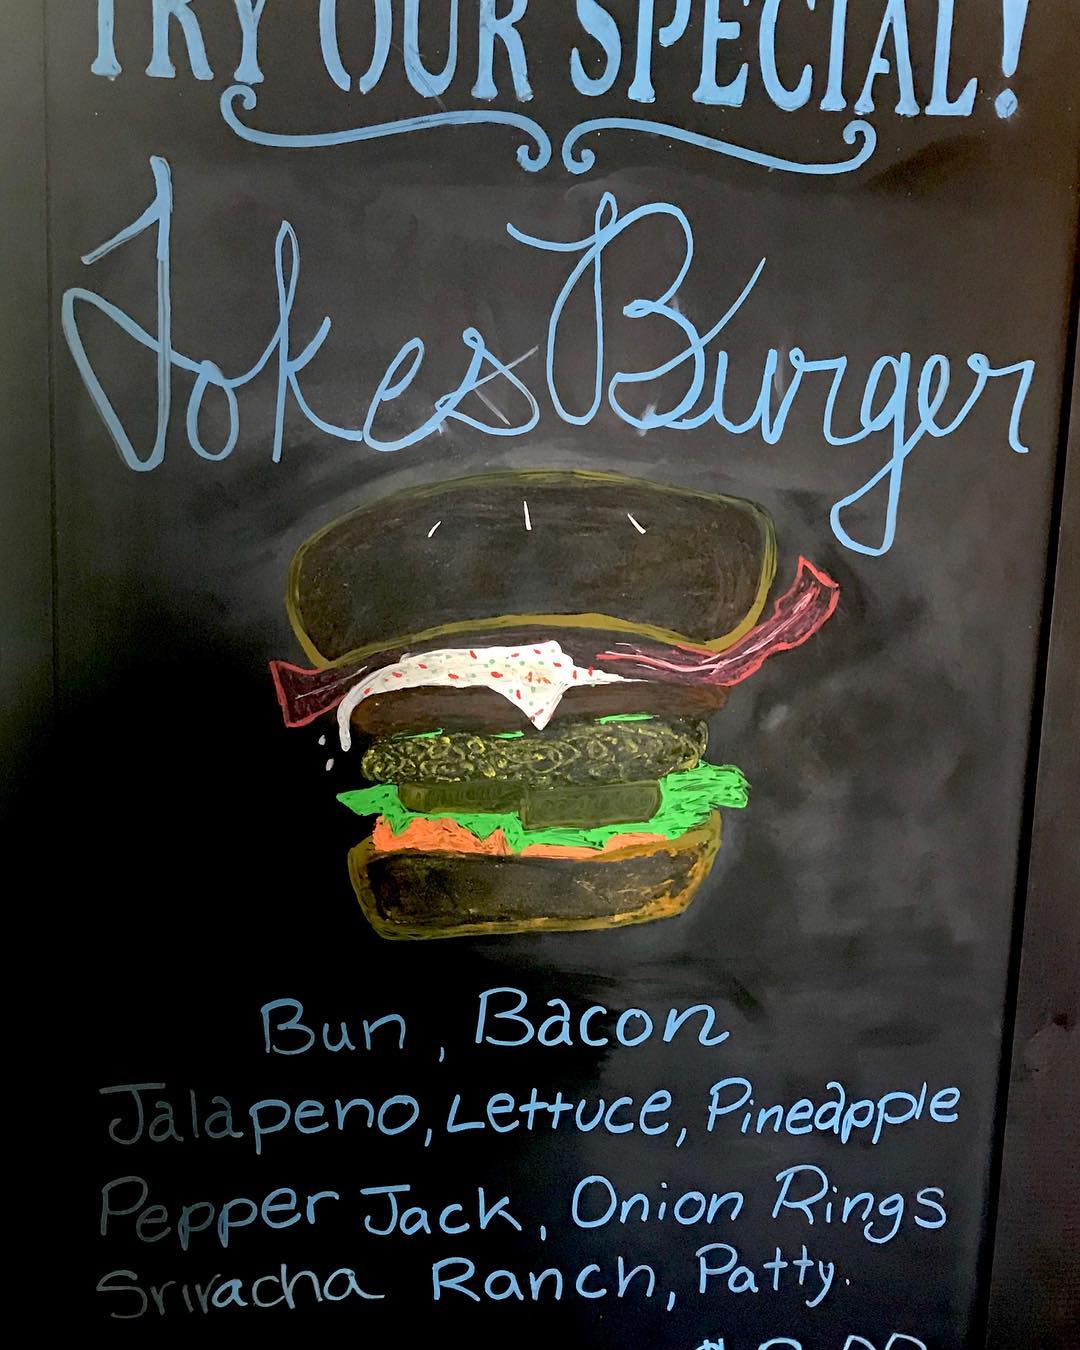 TRY OUR SPECIAL!
Jokes Burger
Bun, Bacon
Jalapeno, Lettuce, Pineapple
Pepper Jack, Onion Rings
Sriracha Ranch, Patty.